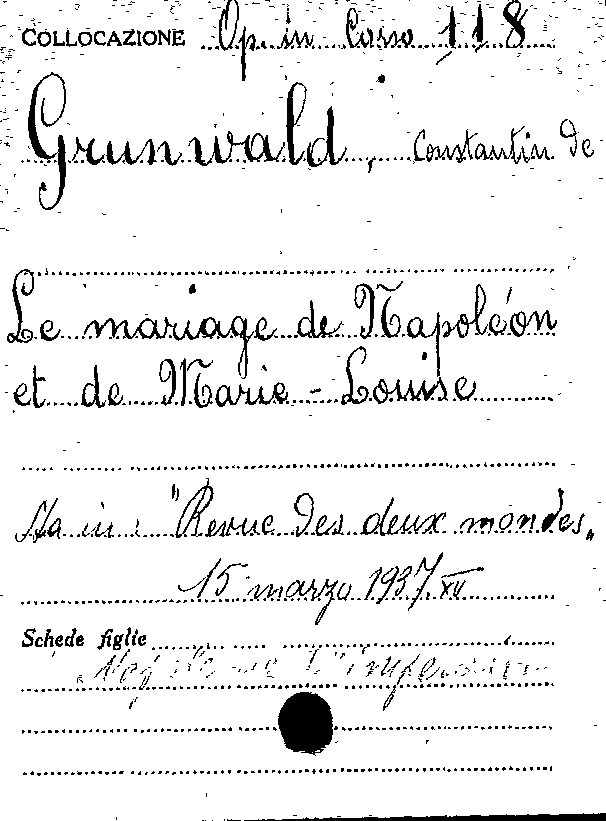 COLLOCAZIONE Op. in Corso 118
Grunwald, Constantin de
Le mariage de Napoléon
et de Marie-Louise
Sta in: "Revue des deux mondes"
15 marzo 1937. XV
Schede figlie